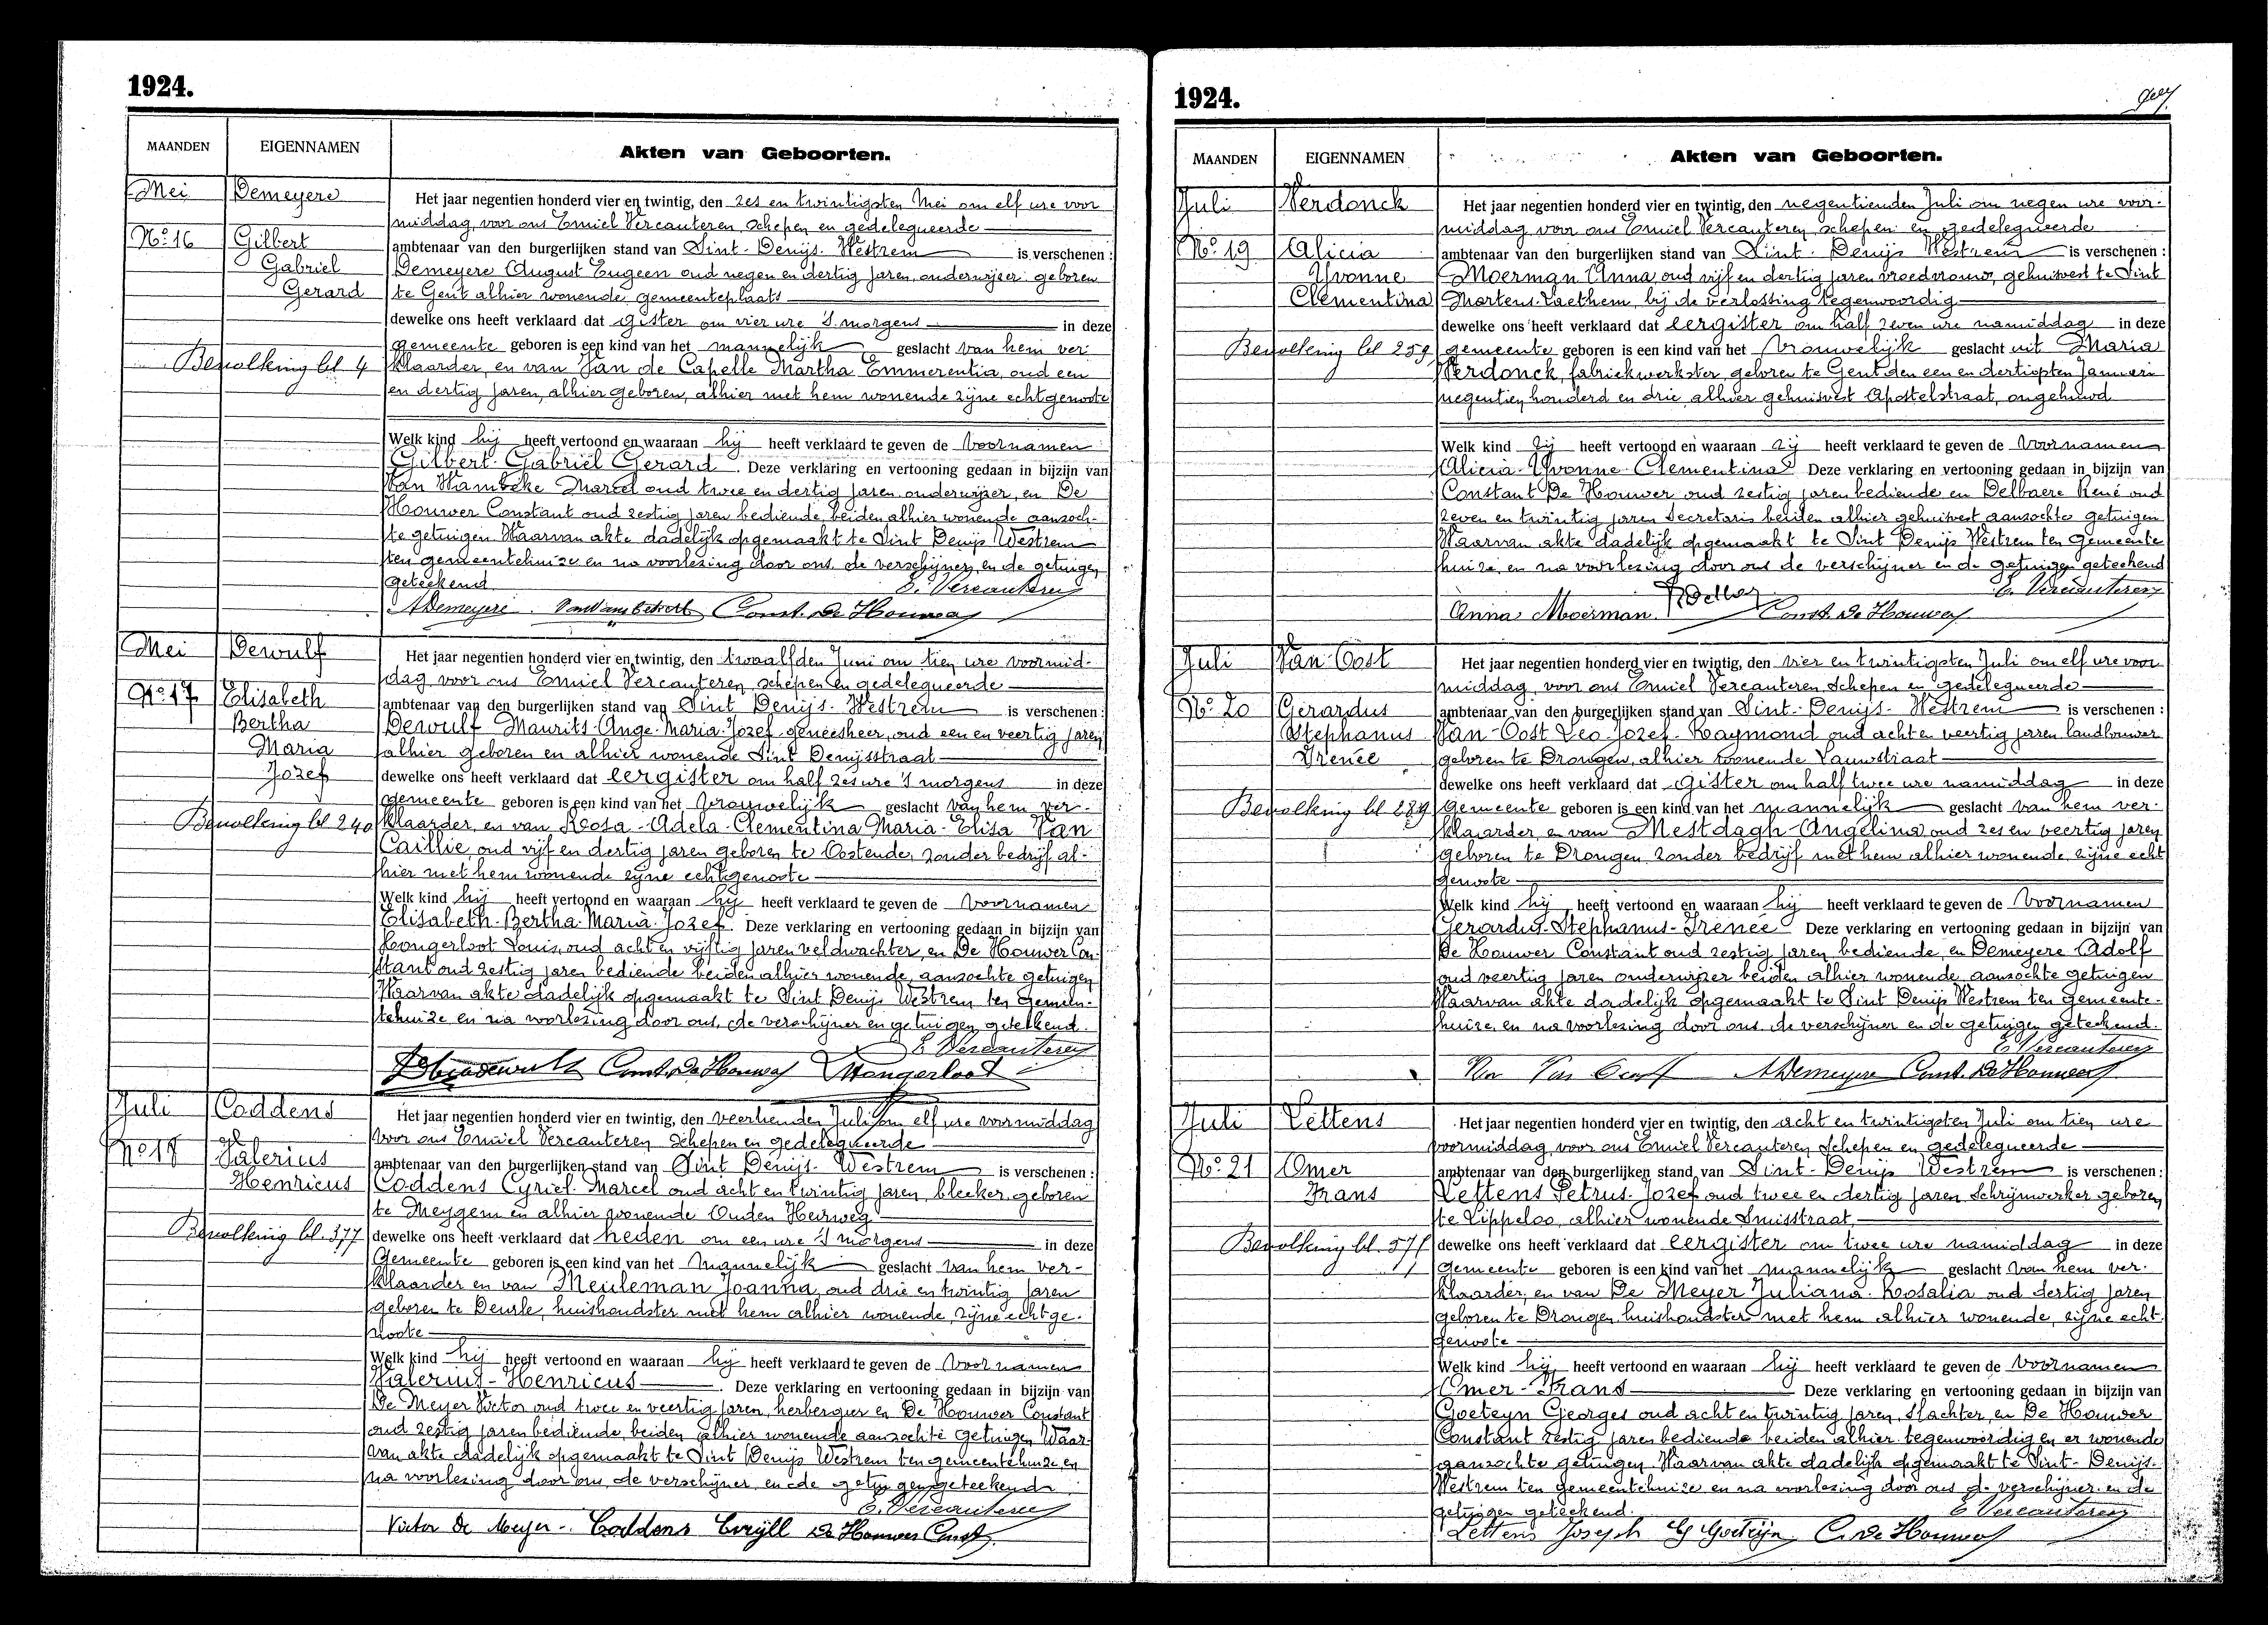 1924.
MAANDEN EIGENNAMEN Akten van Geboorten.
Mei Demeyere
Nº 16 Gilbert
Gabriel
Gerard
Bevolking bl 4
Het jaar negentien honderd vier en twintig, den zes en twintigsten Mei om elf ure voor
middag, voor ons Emiel Vercauteren, schepen en gedelegueerde
ambtenaar van den burgerlijken stand van Sint-Denijs-Westrem is verschenen :
Demeyere August Eugeen oud negen en dertig jaren, onderwijzer geboren
te Gent alhier wonende, gemeenteplaats
dewelke ons heeft verklaard dat gister om vier ure 's morgens in deze
gemeente geboren is een kind van het mannelijk geslacht van hem ver
klaarder, en van Van de Capelle Martha Emmerentia, oud een
en dertig jaren, alhier geboren, alhier met hem wonende zijne echtgenoote
Welk kind hij heeft vertoond en waaraan hij heeft verklaard te geven de voornamen
Gilbert-Gabriël Gerard. Deze verklaring en vertooning gedaan in bijzijn van
Van Wambeke Marcel oud twee en dertig jaren onderwijzer, en De
Houwer Constant oud zestig jaren bediende, beiden alhier wonende aanzoch-
te getuigen Waarvan akte dadelijk opgemaakt te Sint Denijs Westrem
ten gemeentehuize en na voorlezing door ons, de verschijner, en de getuigen
geteekend E. Vercauteren
ADemeyere. Const. De Houwer
Mei Dewulf
Nº 17 Elisabeth
Bertha
Maria
Jozef
Bevolking bl 240
Het jaar negentien honderd vier en twintig, den twaalfden Juni om tien ure voormid-
dag, voor ons Emiel Vercauteren, schepen en gedelegueerde
ambtenaar van den burgerlijken stand van Sint Denijs-Westrem is verschenen :
Dewulf Maurits-Ange-Maria-Jozef-geneesheer, oud een en veertig jaren
alhier geboren en alhier wonende Sint Denijsstraat
dewelke ons heeft verklaard dat eergister om half zes ure 's morgens in deze
gemeente geboren is een kind van het vrouwelijk geslacht van hem ver-
klaarder, en van Rosa-Adela-Clementina Maria-Elisa Van
Caillie oud vijf en dertig jaren geboren te Oostende, zonder bedrijf al-
hier met hem wonende zijne echtgenoote
Welk kind hij heeft vertoond en waaraan hij heeft verklaard te geven de voornamen
Elisabeth-Bertha-Maria-Jozef. Deze verklaring en vertooning gedaan in bijzijn van
Hongerloot Louis, oud acht en vijftig jaren veldwachter, en De Houwer Con-
stant oud zestig jaren bediende beiden alhier wonende, aanzochte getuigen
Waarvan akte dadelijk opgemaakt te Sint Denijs Westrem ten gemeen-
tehuize en na voorlezing door ons, de verschijner en getuigen geteekend.
E Vercauteren
Const. De Houwer Hongerloot
Juli Coddens
Nº 18 Valerius
Henricus
Bevolking bl. 377
Het jaar negentien honderd vier en twintig, den veertienden Juli om elf ure voormiddag
voor ons Emiel Vercauteren schepen en gedelegueerde
ambtenaar van den burgerlijken stand van Sint Denijs-Westrem is verschenen :
Coddens Cyriel-Marcel oud acht en twintig jaren, bleeker, geboren
te Meygem en alhier wonende Ouden Heirweg
dewelke ons heeft verklaard dat heden om een ure 's morgens in deze
Gemeente geboren is een kind van het mannelijk geslacht van hem ver-
klaarder en van Meuleman Joanna, oud drie en twintig jaren
geboren te Deurle, huishoudster met hem alhier wonende, zijne echtge-
noote
Welk kind hij heeft vertoond en waaraan hij heeft verklaard te geven de voornamen
Valerius-Henricus. Deze verklaring en vertooning gedaan in bijzijn van
De Meyer Victor oud twee en veertig jaren, herbergier en De Houwer Constant
oud zestig jaren bediende, beiden alhier wonende aanzochte getuigen Waar-
van akte dadelijk opgemaakt te Sint Denijs Westrem ten gemeentehuize, en
na voorlezing door ons, de verschijner, en de getuigen geteekend
E. Vercauteren
Victor De Meyer-. Coddens Cyrill De Houwer Const.
1924.
MAANDEN EIGENNAMEN Akten van Geboorten.
Juli Verdonck
Nº 19 Alicia
Yvonne
Clementina
Bevolking bl 259
Het jaar negentien honderd vier en twintig, den negentienden Juli om negen ure voor-
middag voor ons Emiel Vercauteren schepen en gedelegueerde
ambtenaar van den burgerlijken stand van Sint-Denijs Westrem is verschenen :
Moerman Anna, oud vijf en dertig jaren vroedvrouw, gehuisvest te Sint
Martens-Laethem, bij de verlossing tegenwoordig
dewelke ons heeft verklaard dat eergister om half zeven ure namiddag in deze
gemeente geboren is een kind van het vrouwelijk geslacht uit Maria
Verdonck, fabriekwerkster, geboren te Gent den een en dertigsten Januari
negentien honderd en drie, alhier gehuisvest Apostelstraat, ongehuwd
Welk kind zij heeft vertoond en waaraan zij heeft verklaard te geven de voornamen
Alicia-Yvonne-Clementina Deze verklaring en vertooning gedaan in bijzijn van
Constant De Houwer oud zestig jaren bediende en Delbaere René oud
zeven en twintig jaren secretaris beiden alhier gehuisvest aanzochte getuigen
Waarvan akte dadelijk opgemaakt te Sint Denijs Westrem ten Gemeente
huize, en na voorlezing door ons de verschijner en de getuigen geteekend
E. Vercauteren
Anna Moerman. Const. De Houwer
Juli Van Oost
Nº 20 Gerardus
Stephanus
Irenée
Bevolking bl 289
Het jaar negentien honderd vier en twintig, den vier en twintigsten Juli om elf ure voor
middag, voor ons Emiel Vercauteren schepen en gedelegueerde
ambtenaar van den burgerlijken stand van Sint-Denijs-Westrem is verschenen :
Van-Oost Leo-Jozef-Raymond oud acht en veertig jaren landbouwer
geboren te Drongen, alhier wonende Lauwstraat
dewelke ons heeft verklaard dat gister om half twee ure namiddag in deze
gemeente geboren is een kind van het mannelijk geslacht van hem ver-
klaarder, en van Mestdagh-Angelina oud zes en veertig jaren
geboren te Drongen, zonder bedrijf met hem alhier wonende, zijne echt
genoote
Welk kind hij heeft vertoond en waaraan hij heeft verklaard te geven de voornamen
Gerardus-Stephanus-Irenée Deze verklaring en vertooning gedaan in bijzijn van
De Houwer Constant oud zestig jaren bediende, en Demeyere Adolf
oud veertig jaren onderwijzer beiden alhier wonende, aanzochte getuigen
Waarvan akte dadelijk opgemaakt te Sint Denijs Westrem ten gemeente-
huize, en na voorlezing door ons de verschijner en de getuigen geteekend.
E Vercauteren
Van Oost ADemeyere Const. De Houwer
Juli Lettens
Nº 21 Omer
Frans
Bevolking bl.
Het jaar negentien honderd vier en twintig, den acht en twintigsten Juli om tien ure
voormiddag, voor ons Emiel Vercauteren, schepen en gedelegueerde
ambtenaar van den burgerlijken stand van Sint-Denijs Westrem is verschenen :
Lettens Petrus-Jozef oud twee en dertig jaren schrijnwerker geboren
te Lippeloo, alhier wonende
dewelke ons heeft verklaard dat eergister om twee ure namiddag in deze
gemeente geboren is een kind van het mannelijk geslacht van hem ver-
klaarder, en van De Meyer Juliana-Rosalia oud dertig jaren
geboren te Drongen huishoudster met hem alhier wonende, zijne echt
genoote
Welk kind hij heeft vertoond en waaraan hij heeft verklaard te geven de voornamen
Omer-Frans Deze verklaring en vertooning gedaan in bijzijn van
Goeteyn Georges oud acht en twintig jaren, slachter, en De Houwer
Constant zestig jaren bediende beiden alhier tegenwoordig en er wonende
aanzochte getuigen Waarvan akte dadelijk opgemaakt te Sint-Denijs-
Westrem ten gemeentehuize en na voorlezing door ons de verschijner en de
getuigen geteekend. E Vercauteren
Lettens Joseph G Goeteyn C. De Houwer